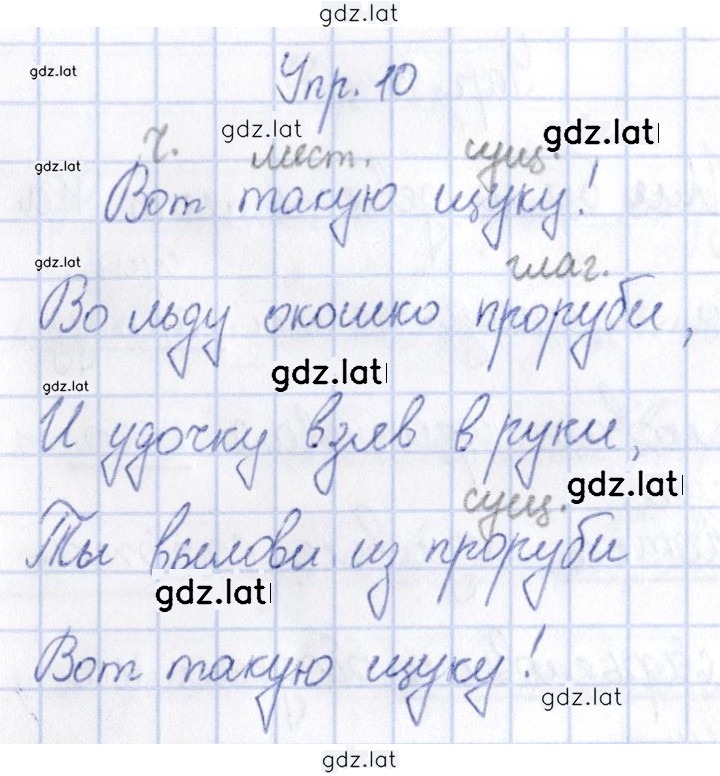 gdz.lat
gdz.lat
Упр. 10
gdz.lat
gdz.lat
ч. мест. сущ.
gdz.lat
Вот такую щуку!
gdz.lat
глаг.
Во льду окошко проруби,
gdz.lat
gdz.lat
И удочку взяв в руки,
gdz.lat
сущ.
Ты вылови из проруби
gdz.lat
Вот такую щуку!
gdz.lat
gdz.lat